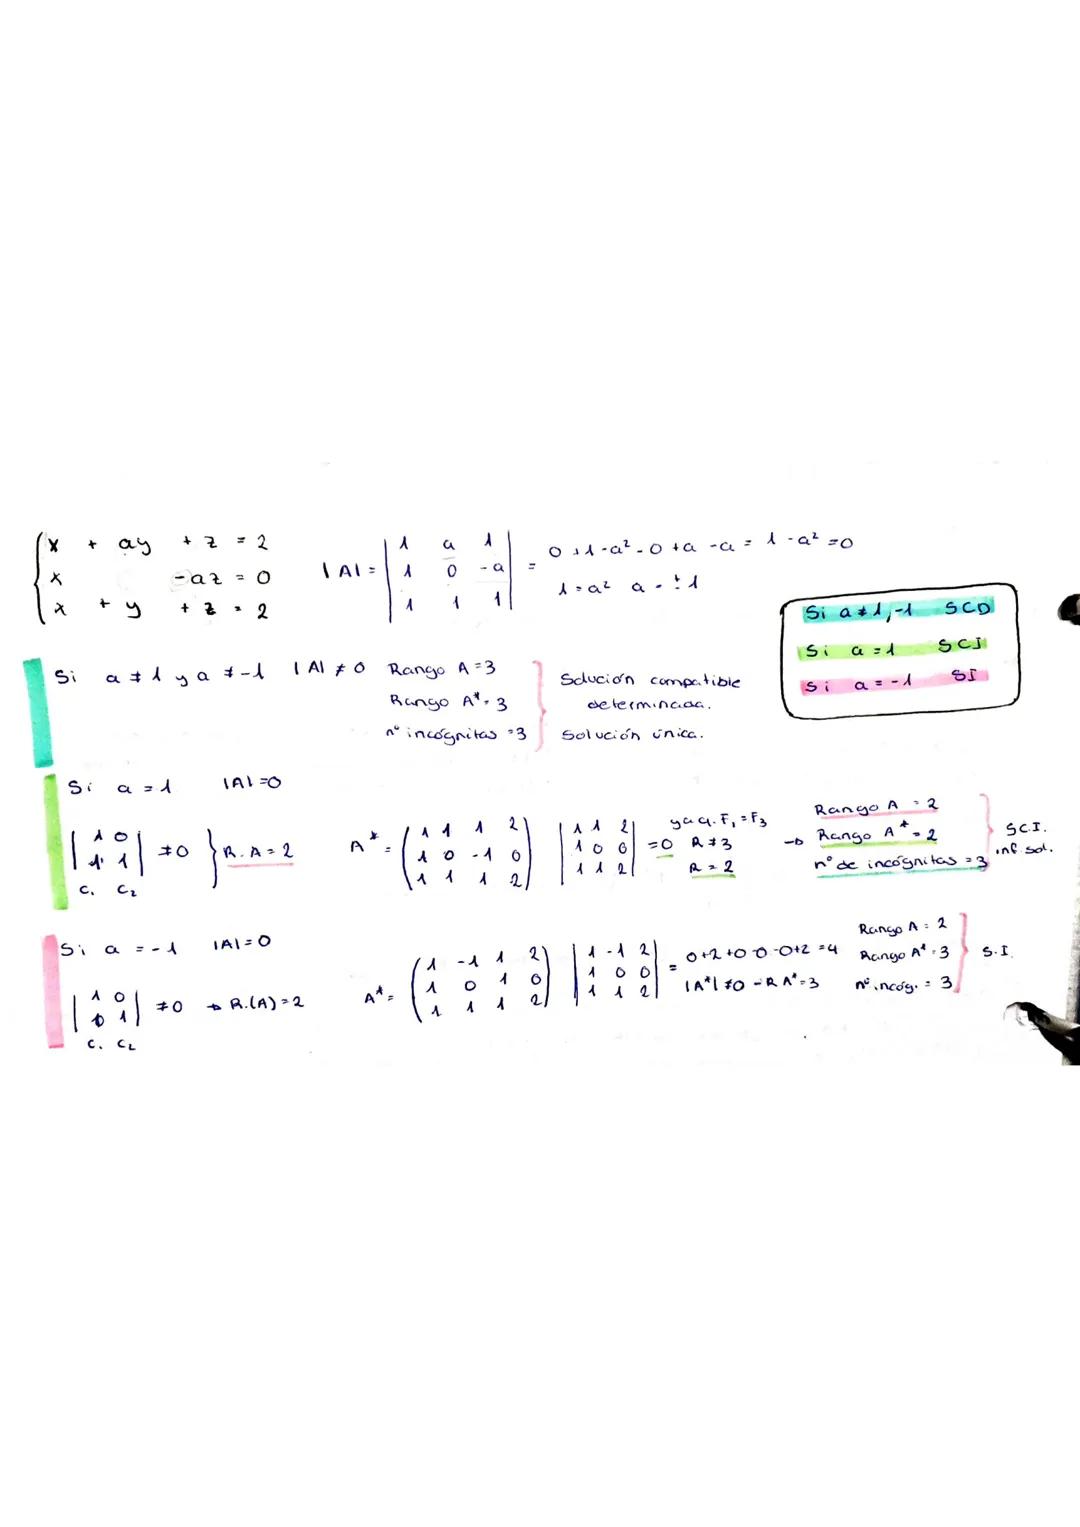 x + ay + z = 2
x -az = 0
x + y + z = 2
|A| = | 1 a 1 | 1 0 -a | 1 1 1 | = 0 +1 -a² -0 +a -a = 1 -a² =0
1 = a² a = ±1
Si a≠1,-1 SCD
Si a=1 SCI
Si a=-1 SI
Si a ≠ 1 y a ≠ -1 |A| ≠ 0 Rango A =3
Rango A* = 3
nº incógnitas =3
Solución compatible
determinada.
Solución única.
Si a = 1 |A| =0
| 1 0 |
| 1 1 | ≠0 } R. A = 2
C₁ C₂
A* =
( 1 1 1 2 )
( 1 0 -1 0 )
( 1 1 1 2 )
| 1 1 2 |
| 1 0 0 | =0
| 1 1 2 |
ya q. F₁ = F₃
R ≠ 3
R = 2
→ Rango A = 2
Rango A* = 2
nº de incógnitas = 3
S.C.I.
inf sol.
Si a = -1 |A| = 0
| 1 0 |
| 0 1 | ≠0 → R.(A) = 2
C₁ C₂
A* =
( 1 -1 1 2 )
( 1 0 1 0 )
( 1 1 1 2 )
| 1 -1 2 |
| 1 0 0 |
| 1 1 2 |
= 0+2+0-0-0+2 =4
|A*| ≠0 - R A* = 3
Rango A = 2
Rango A* = 3
nº incóg. = 3
S.I.